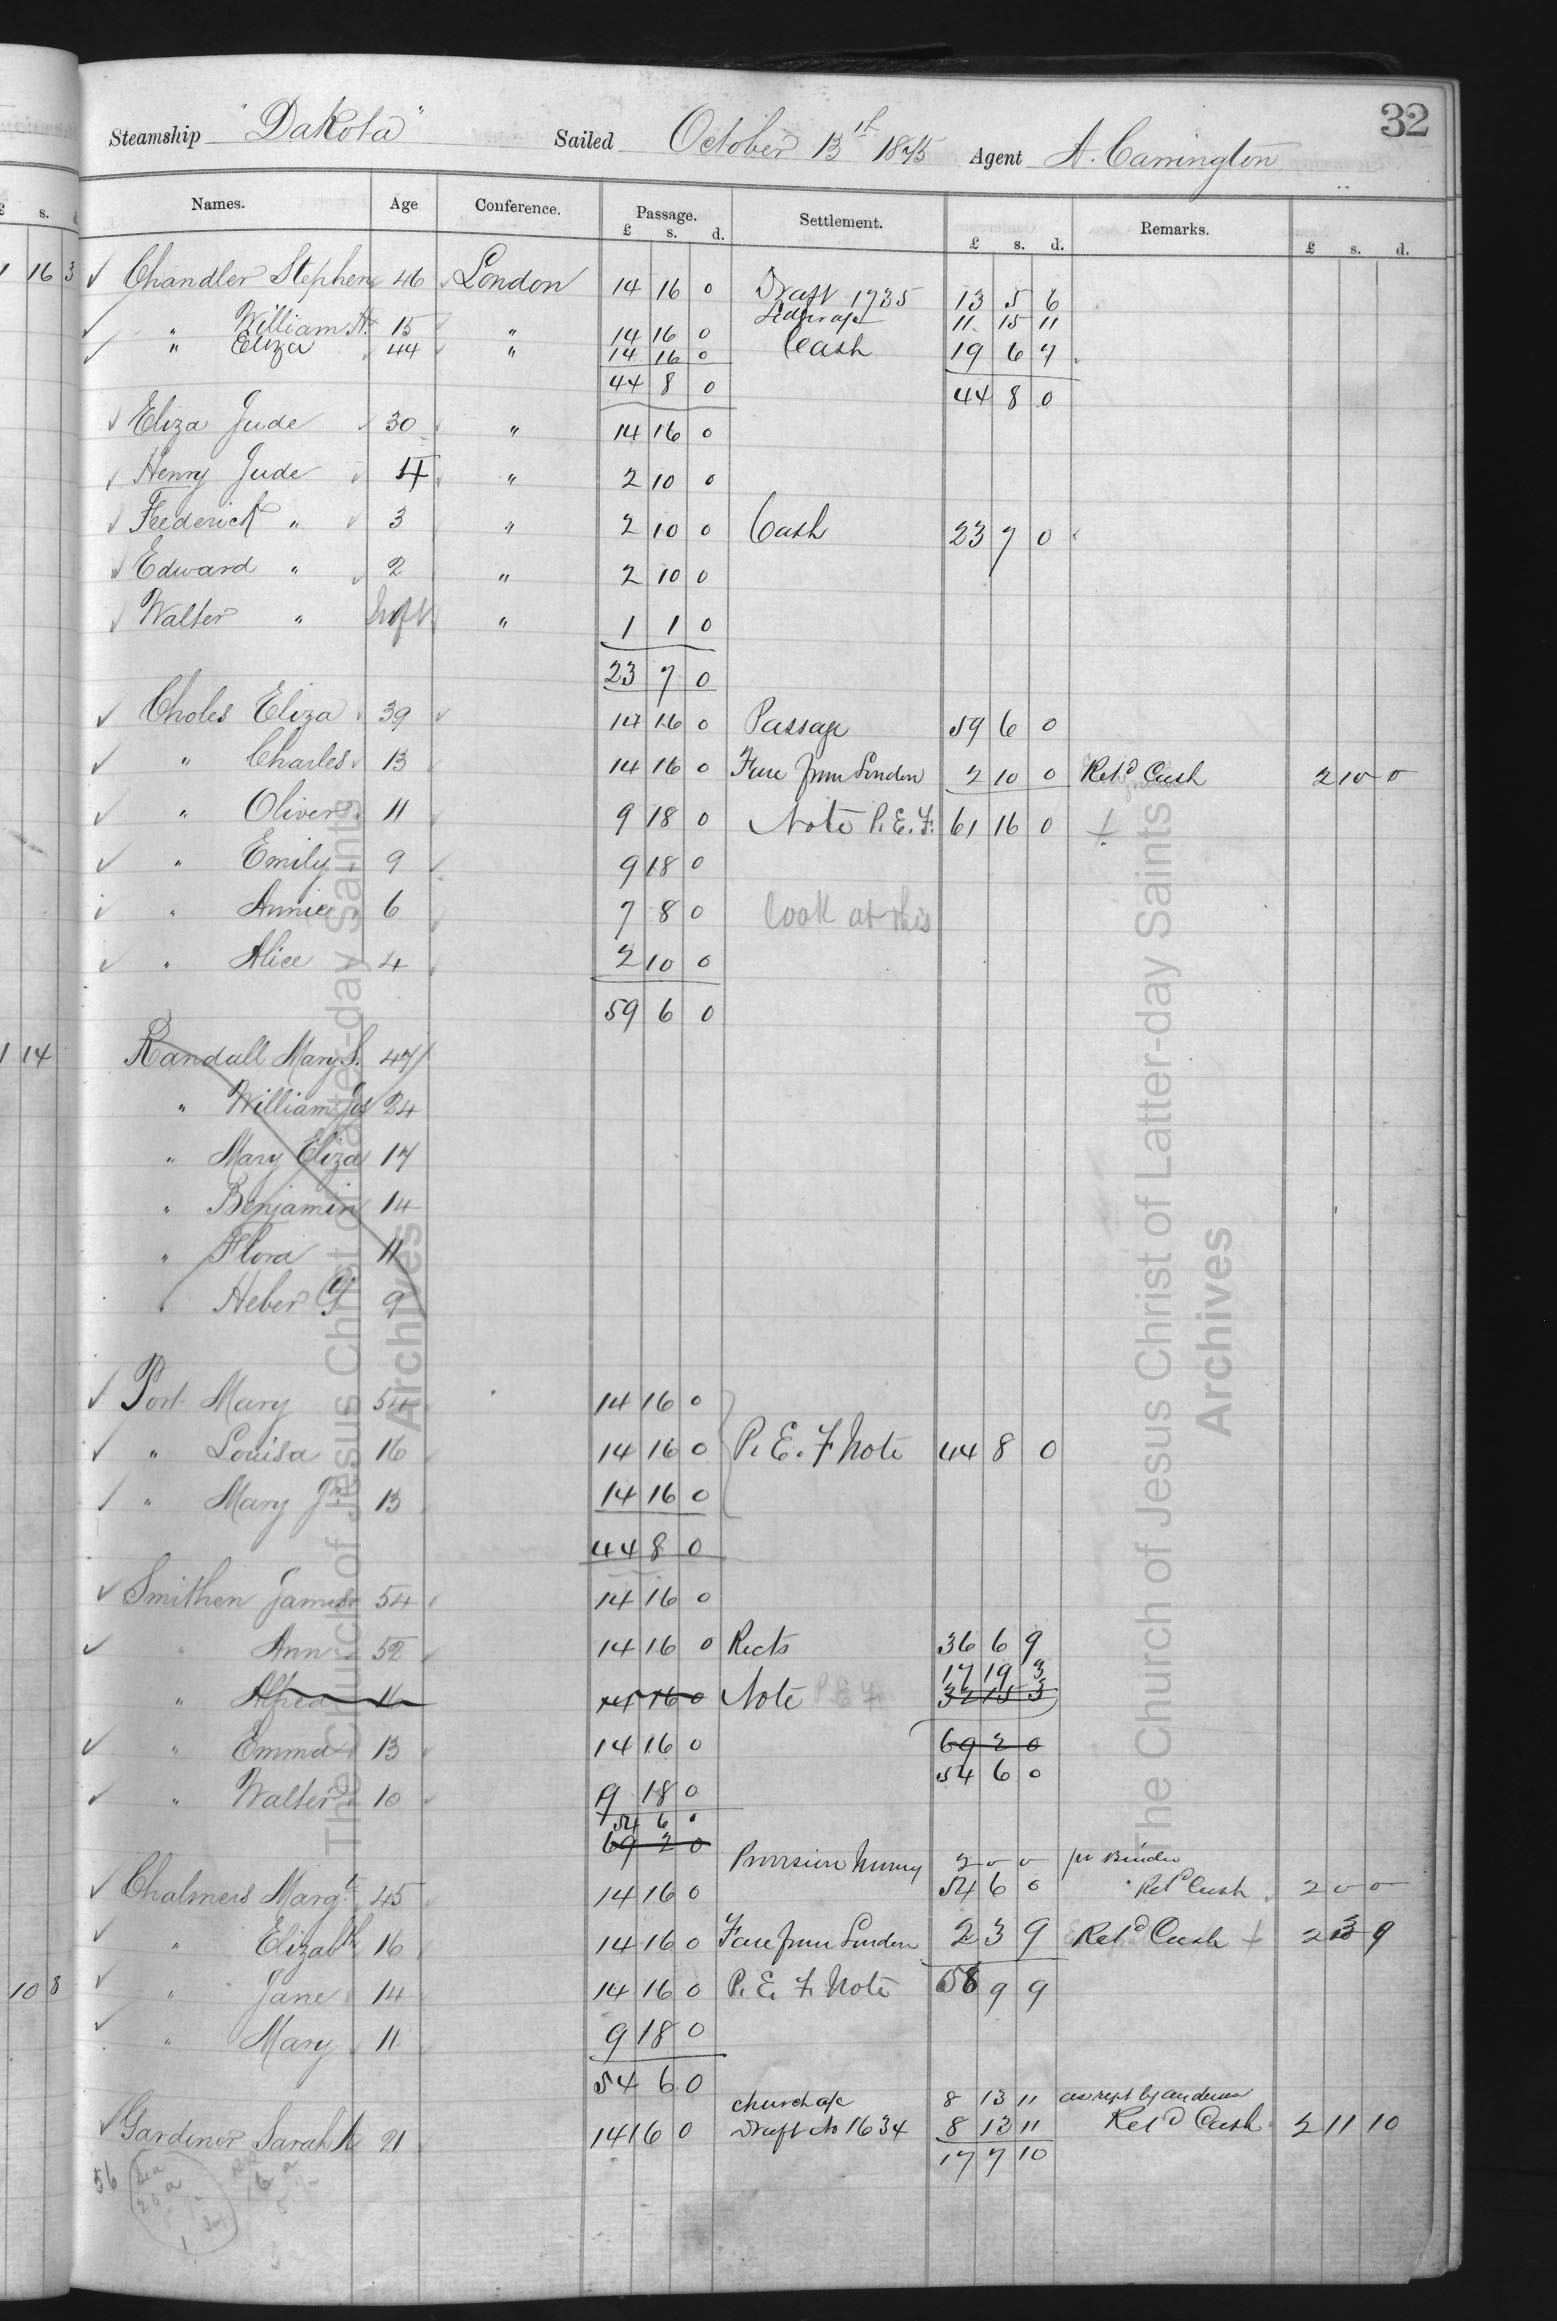 32
Steamship "Dakota" Sailed October 13th 1875 Agent A. Carrington
£ s. d. Names. Age Conference. Passage. £ s. d. Settlement. £ s. d. Remarks. £ s. d.
1 16 3 Chandler Stephen 46 London 14 16 0 Draft 1735 13 5 6
" William A. 15 " 14 16 0 11 15 11
" Eliza 44 " 14 16 0 Cash 19 6 7
44 8 0 44 8 0
Eliza Jude 30 " 14 16 0
Henry Jude 4 " 2 10 0
Frederick " 3 " 2 10 0 Cash 23 7 0
Edward " 2 " 2 10 0
Walter " Inft " 1 1 0
23 7 0
Choles Eliza 39 14 16 0 Passage 59 6 0
" Charles 13 14 16 0 Fare from London 2 10 0 Retd Cash 2 10 0
" Oliver 11 9 18 0 Note P. E. F. 61 16 0
" Emily 9 9 18 0
" Annie 6 7 8 0 look at this
" Alice 4 2 10 0
59 6 0
1 14 Randall Mary S. 47
" William Jos 24
" Mary Eliza 17
" Benjamin 14
" Flora 11
" Heber G 9
Port Mary 54 14 16 0
" Louisa 16 14 16 0 P. E. F Note 44 8 0
" Mary Jn 13 14 16 0
44 8 0
Smithen James 54 14 16 0
" Ann 52 14 16 0 Rects 36 6 9
17 19 3
" Alfred 16 14 16 0 Note P E F 32 15 3
" Emma 13 14 16 0 69 2 0
54 6 0
" Walter 10 9 18 0
54 6 0
69 2 0
Provision money 2 0 0 pr Binder
Chalmers Margt 45 14 16 0 54 6 0 Retd Cash 2 0 0
" Elizabth 16 14 16 0 Fare from London 2 3 9 Retd Cash 2 3 9
10 8 " Jane 14 14 16 0 P. E. F. Note 58 9 9
" Mary 11 9 18 0
54 6 0
Church a/c 8 13 11
Gardiner Sarah A 21 14 16 0 Draft No 1634 8 13 11 Retd Cash 2 11 10
17 7 10
56
The Church of Jesus Christ of Latter-day Saints
Archives
The Church of Jesus Christ of Latter-day Saints
Archives